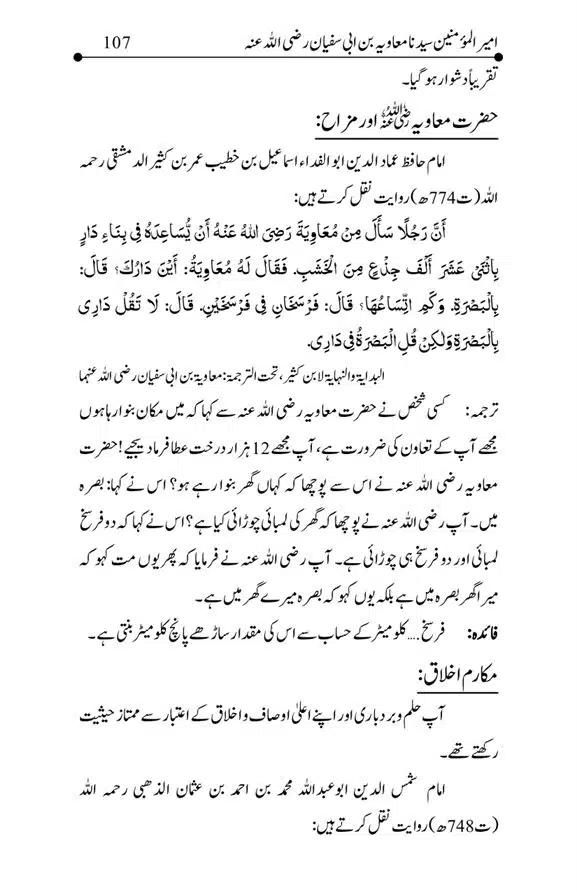 امیر المؤمنین سیدنا معاویہ بن ابی سفیان رضی اللہ عنہ 107
تقریباً دشوار ہو گیا۔
حضرت معاویہ رضی اللہ عنہ اور مزاح:
امام حافظ عماد الدین ابو الفداء اسماعیل بن خطیب عمر بن کثیر الدمشقی رحمہ
اللہ (ت774ھ) روایت نقل کرتے ہیں:
أَنَّ رَجُلًا سَأَلَ مِنْ مُعَاوِيَةَ رَضِیَ اللهُ عَنْهُ أَنْ يُّسَاعِدَهُ فِی بِنَاءِ دَارٍ
بِاثْنَیْ عَشَرَ أَلْفَ جِذْعٍ مِنَ الْخَشَبِ. فَقَالَ لَهُ مُعَاوِيَةُ: أَيْنَ دَارُكَ؟ قَالَ:
بِالْبَصْرَةِ. وَكَمِ اتِّسَاعُهَا؟ قَالَ: فَرْسَخَانِ فِی فَرْسَخَيْنِ. قَالَ: لَا تَقُلْ دَارِی
بِالْبَصْرَةِ وَلٰكِنْ قُلِ الْبَصْرَةُ فِی دَارِی.
البدایۃ والنہایۃ لابن کثیر، تحت الترجمۃ: معاویۃ بن ابی سفیان رضی اللہ عنہما
ترجمہ: کسی شخص نے حضرت معاویہ رضی اللہ عنہ سے کہا کہ میں مکان بنوا رہا ہوں
مجھے آپ کے تعاون کی ضرورت ہے، آپ مجھے 12 ہزار درخت عطا فرما دیجیے! حضرت
معاویہ رضی اللہ عنہ نے اس سے پوچھا کہ کہاں گھر بنوا رہے ہو؟ اس نے کہا: بصرہ
میں۔ آپ رضی اللہ عنہ نے پوچھا کہ گھر کی لمبائی چوڑائی کیا ہے؟ اس نے کہا کہ دو فرسخ
لمبائی اور دو فرسخ ہی چوڑائی ہے۔ آپ رضی اللہ عنہ نے فرمایا کہ پھر یوں مت کہو کہ
میرا گھر بصرہ میں ہے بلکہ یوں کہو کہ بصرہ میرے گھر میں ہے۔
فائدہ: فرسخ.... کلومیٹر کے حساب سے اس کی مقدار ساڑھے پانچ کلومیٹر بنتی ہے۔
مکارم اخلاق:
آپ حلم و بردباری اور اپنے اعلیٰ اوصاف و اخلاق کے اعتبار سے ممتاز حیثیت
رکھتے تھے۔
امام شمس الدین ابو عبد اللہ محمد بن احمد بن عثمان الذھبی رحمہ اللہ
(ت748ھ) روایت نقل کرتے ہیں: